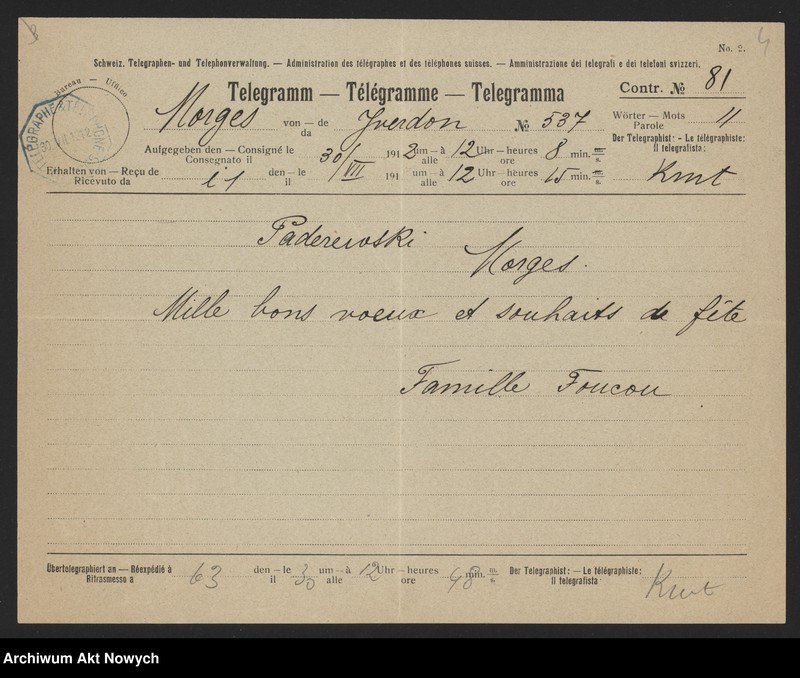 No. 2.
Schweiz. Telegraphen- und Telephonverwaltung. — Administration des télégraphes et des téléphones suisses. — Amministrazione dei telegrafi e dei telefoni svizzeri.
Bureau — Ufficio
Telegramm — Télégramme — Telegramma
Contr. № 81
Morges von — de da Yverdon № 537
Wörter — Mots Parole 11
Aufgegeben den — Consigné le Consegnato il 30/VII 1912 um — à alle 12 Uhr — heures ore 8 min. m/s.
Der Telegraphist: - Le télégraphiste: Il telegrafista:
Erhalten von — Reçu de Ricevuto da den — le il 191 um — à alle 12 Uhr — heures ore 15 min. m/s.
Paderewski
Morges.
Mille bons voeux et souhaits de fête
Famille Foucou
Übertelegraphiert an — Réexpédié à Ritrasmesso a 63 den — le il 30 um — à alle 12 Uhr — heures ore 48 min. m/s. Der Telegraphist: — Le télégraphiste: Il telegrafista:
Archiwum Akt Nowych